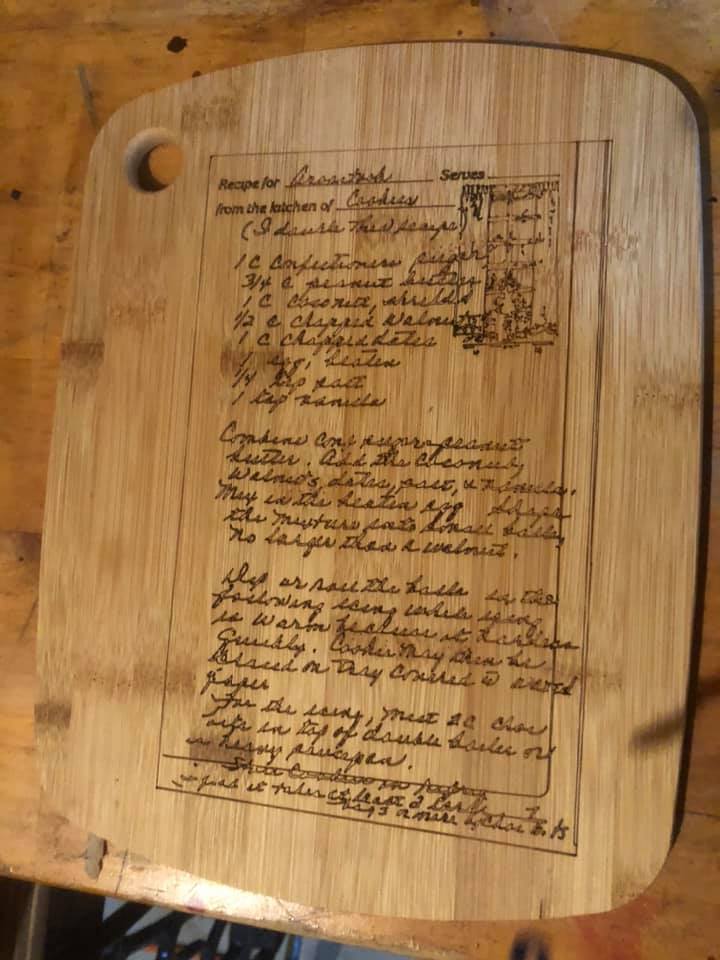 Recipe for Aroostook Serves
from the kitchen of Cookies
(I double this recipe)
1 C Confectioners sugar
3/4 C peanut butter
1 C Coconut, shredded
1/2 C chopped Walnuts
1 C chopped dates
1 egg, beaten
1/4 tsp salt
1 tsp vanilla
Combine conf sugar & peanut
butter. Add the coconut,
Walnuts, dates, salt, & vanilla.
Mix in the beaten egg Shape
the mixture into small balls,
no larger than a walnut.
Dip or roll the balls in the
following icing while icing
is warm because it hardens
quickly. Cookies may then be
placed on tray covered w waxed
paper
For the icing, melt 2 C choc
bits in top of double boiler or
a heavy saucepan.
Store Cookies in
I find it takes at least 2
or more choc